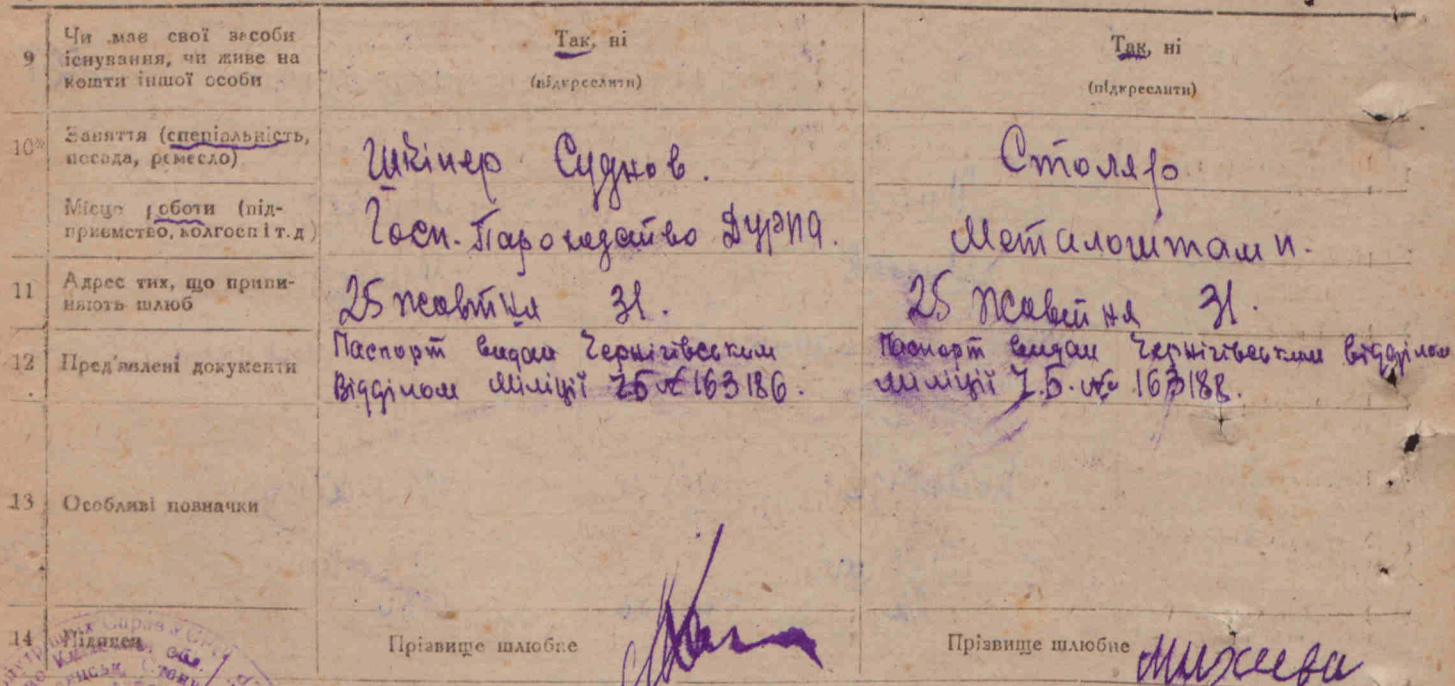 9 Чи має свої засоби існування, чи живе на кошти іншої особи
Так, ні
(підкреслити)
Так, ні
(підкреслити)
10 Заняття (спеціальність, посада, ремесло)
Шкіпер Суднов.
Столяр
Місце роботи (підприємство, колгосп і т.д)
Госп. Пароходство
Металоштамп.
11 Адрес тих, що припиняють шлюб
25 жовтня 31.
25 жовтня 31.
12 Пред'явлені документи
Паспорт видан Чернігівським
Відділом Міліції № 163186.
Паспорт видан Чернігівським відділом
міліції № 163188.
13 Особливі позначки
14 Підписи
Прізвище шлюбне
Прізвище шлюбне